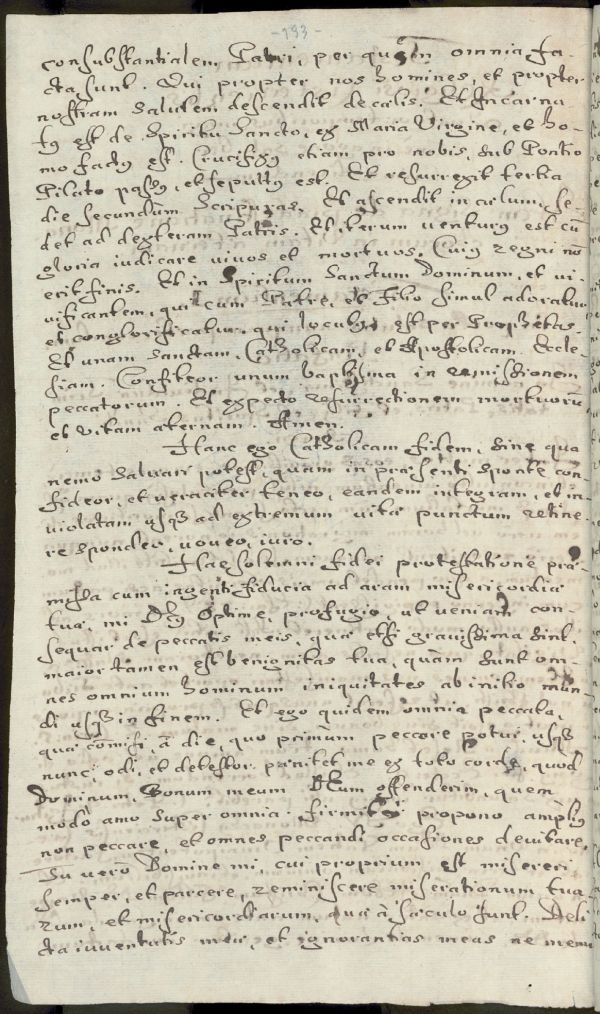 -193-
consubstantialem Patri, per quem omnia fa-
cta sunt. Qui propter nos homines, et propter
nostram salutem descendit de cælis. Et Incarna
tꝰ est de Spiritu Sancto, ex Maria Virgine, et ho-
mo factꝰ est. Crucifixꝰ etiam, pro nobis, sub Pontio
Pilato passꝰ, et sepultꝰ est. Et resurrexit tertia
die secundùm Scripuras. Et ascendit in cælum, se-
det ad dexteram Patris. Et iterum venturꝰ est cū
gloria iudicare vivos et mortuos. Cuiꝰ regni nō
erit finis. Et in Spiritum Sanctum Dominum, et vi-
vificantem, qui cum Patre, et Filio simul adoratur
et conglorificatur. qui locutꝰ est per Prophetas.
Et unam Sanctam, Catholicam, et Apostolicam Eccle-
siam. Confiteor unum baptisma in remissionem
peccatorum. Et expecto resurrectionem mortuorū
et vitam æternam. Amen.
Hanc ego Catholicam fidem, sine qua
nemo salvari potest, quam in præsenti sponte con-
fideor, et veraciter teneo, eandem integram, et in-
violatam usqꝫ ad extremum vitæ punctum retine-
re spondeo, voveo, iuro.
Hac solemni fidei protestatione præ-
missa cum ingenti fiducia ad aram misericordiæ
tuæ, mi Deꝰ Optime, profugio, ut veniam con-
sequar de peccatis meis, quæ etsi gravissima sint,
maior tamen est benignitas tua, quàm sunt om-
nes omnium hominum iniquitates ab initio mun-
di usqꝫ in finem. Et ego quidem omnia peccata,
quæ cōmisi, à die, quo primum peccare potui, usqꝫ
nunc, odi, et detestor. pænitet me ex toto corde, quod
Dominum, Bonum meum DEum offenderim, quem
modò amo super omnia. firmiter propono ampliꝰ
non peccare, et omnes peccandi occasiones devitare.
Tu verò Domine mi, cui proprium est misereri
semper, et parcere, reminiscere miserationum tua
rum, et misericordiarum, quæ à sæculo sunt. Deli
cta iuventutis meæ, et ignorantias meas ne memi